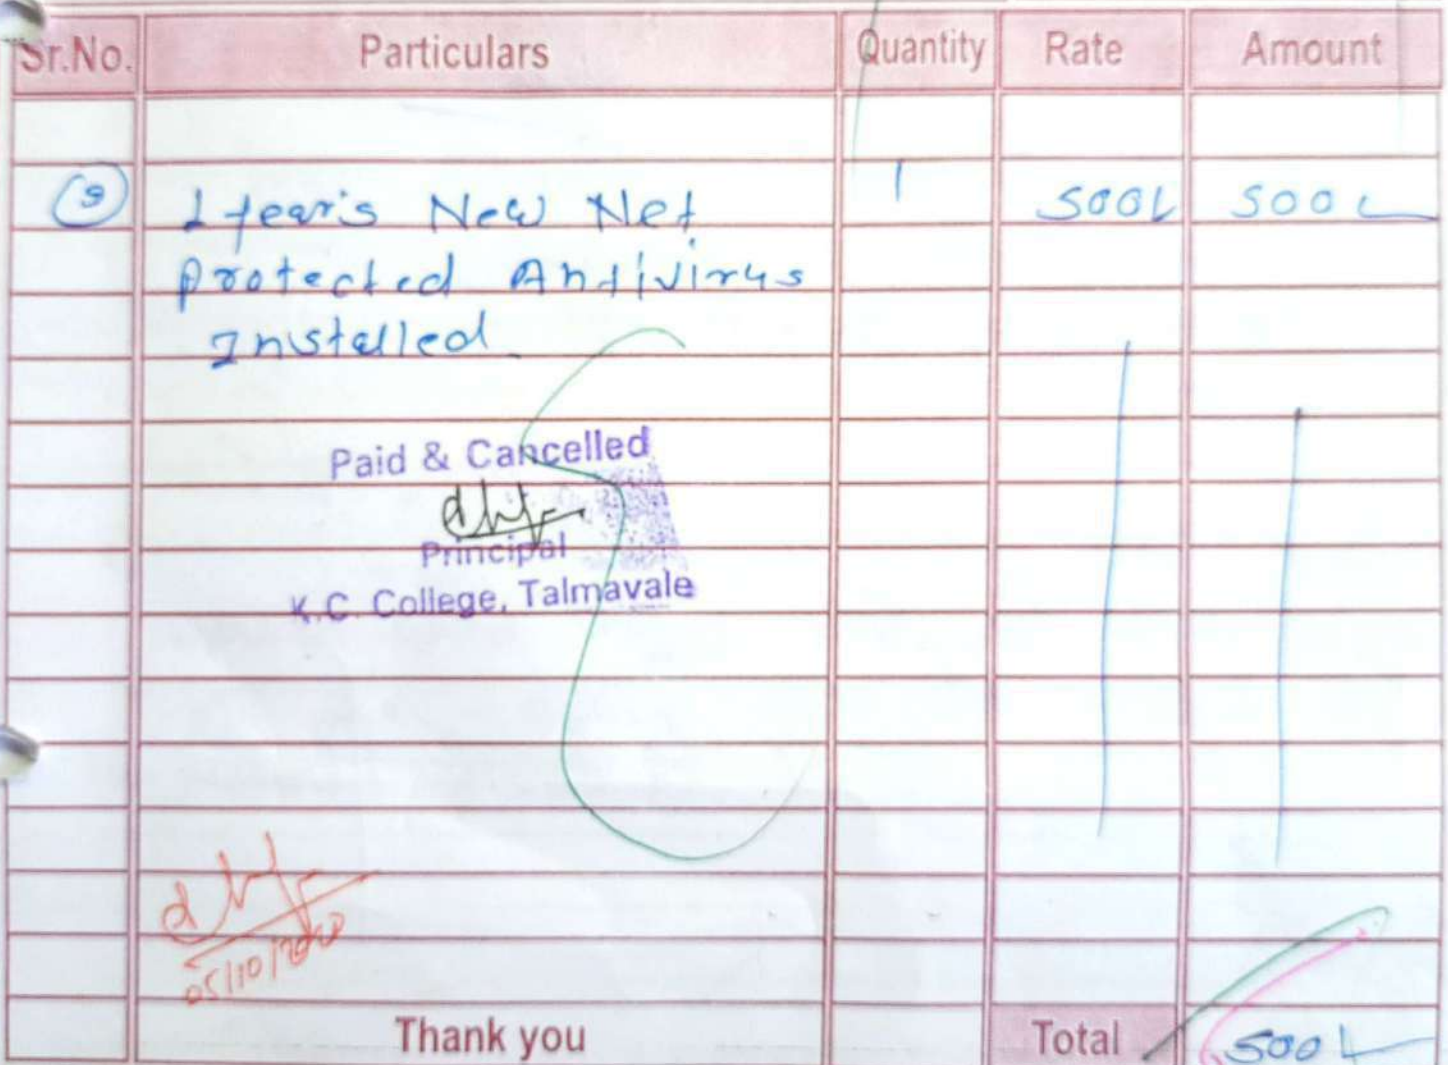 Sr.No. Particulars Quantity Rate Amount
1 Year's New Net 1 500/- 500/-
Protected Antivirus
Installed
Paid & Cancelled
Principal
K.C. College, Talmavale
05/10/2020
Thank you Total 500/-